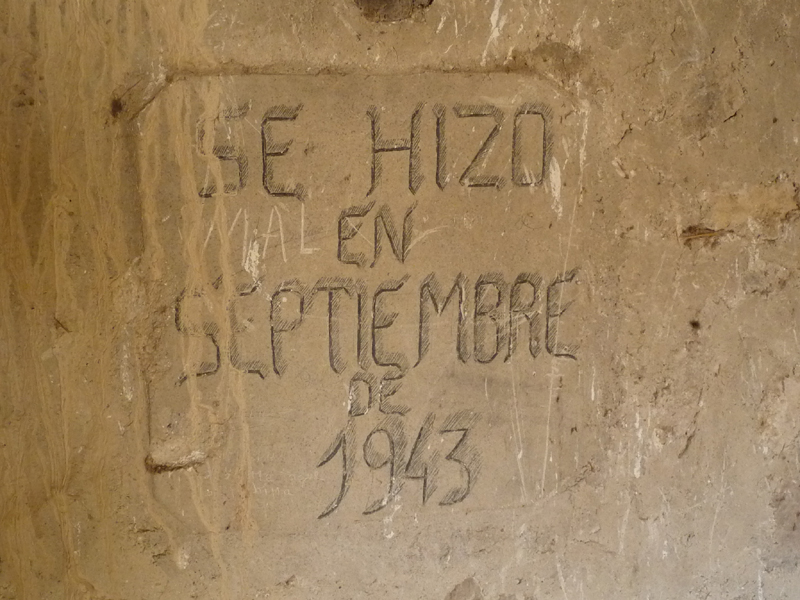 SE HIZO
MAL EN
SEPTIEMBRE
DE
1943